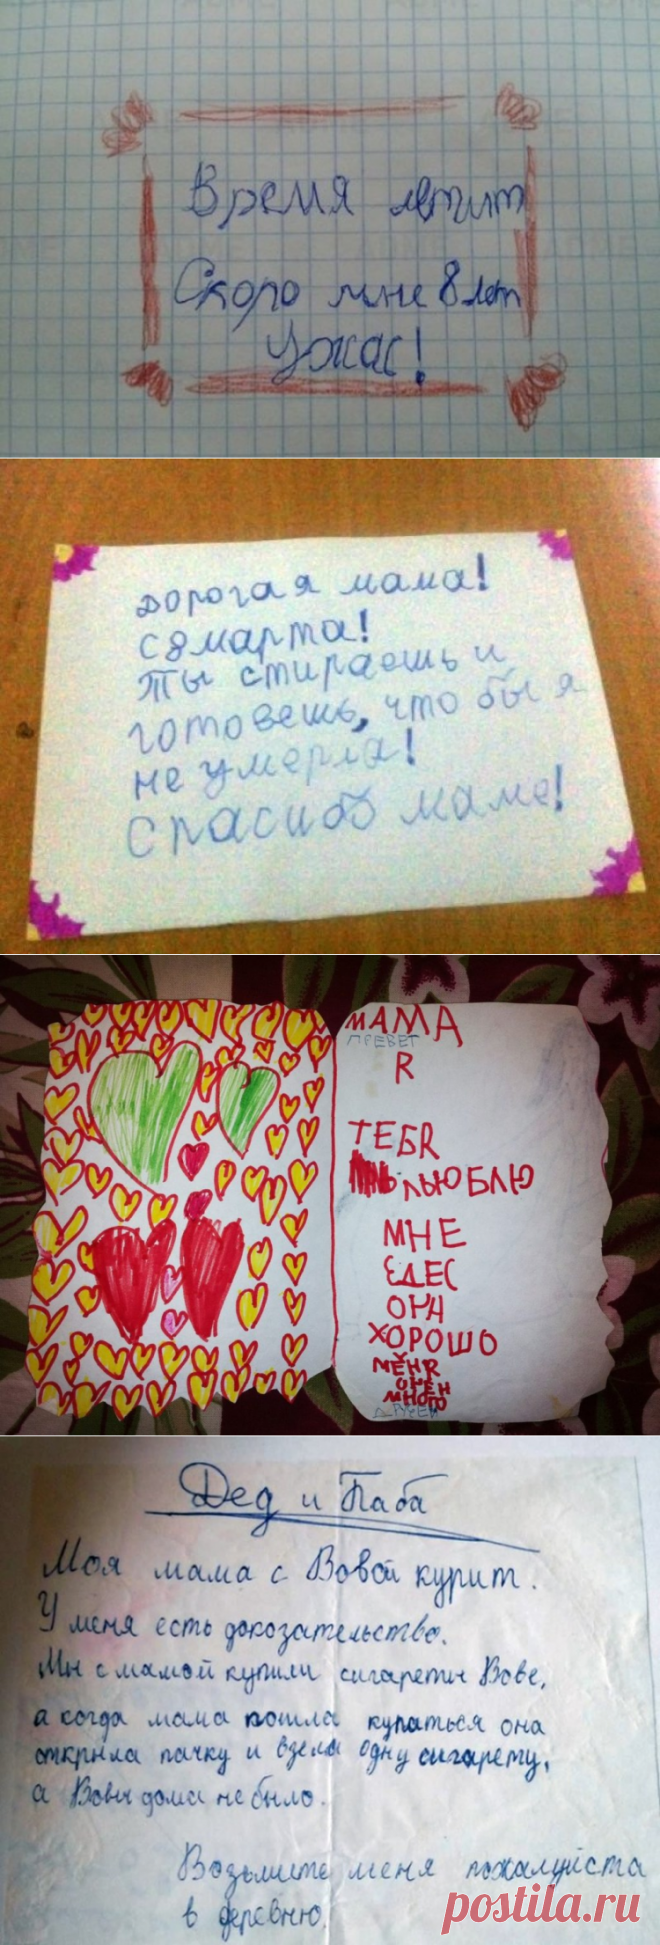 Время летит
Скоро мне 8 лет
Ужас!
дорогая мама!
с 8 марта!
ты стираешь и
готовешь, что бы я
не умерла!
спасибо маме!
МАМА
ПРЕВЕТ
R
ТЕБR
ЛЬЮБЛЮ
МНЕ
ЕДЕС
ОЧН
ХОРОШО
МЕНR
ОЧЕН
МНОГО
ДРУЗЕЙ
Дед и Баба
Моя мама с Вовой курит.
У меня есть докозательство.
Мы с мамой купили сигареты Вове,
а когда мама пошла купаться она
открыла пачку и взела одну сигарету,
а Вовы дома не было.
Возьмите меня пожалуйста
в деревню.
postila.ru